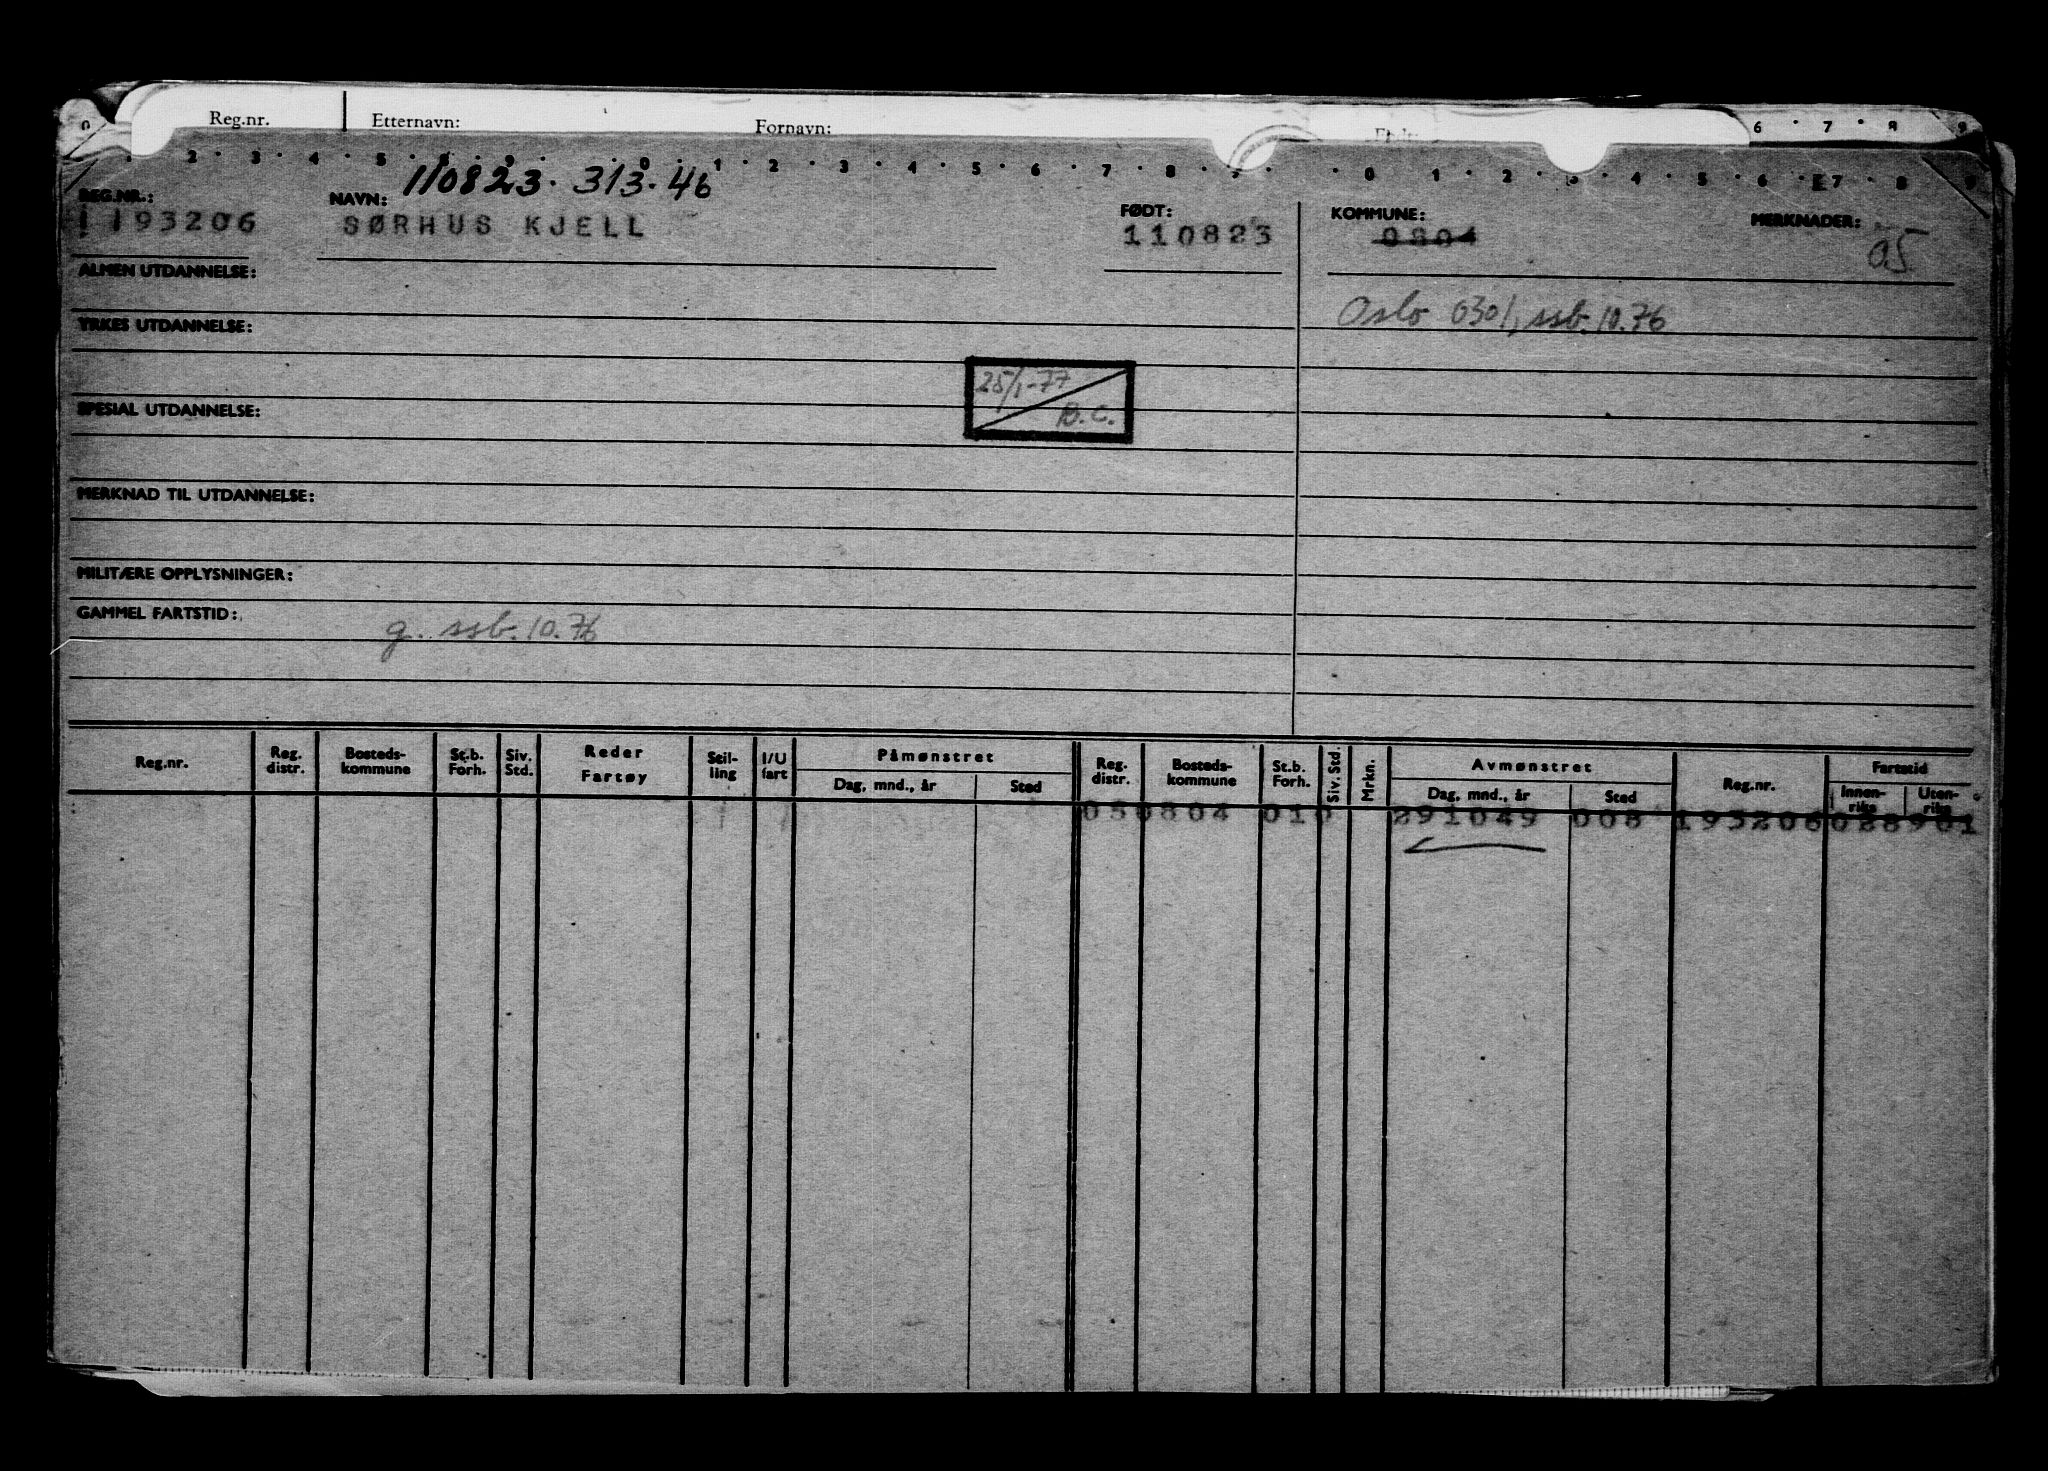 Reg.nr. Etternavn: Fornavn:
6 7 8 9
1 2 3 4 5 0 1 2 3 4 5 6 7 8 0 1 2 3 4 5 6 E7 8 9
110823. 313.46
REG.NR.: NAVN: FØDT: KOMMUNE: MERKNADER:
193206 SØRHUS KJELL 110823 0804 05
ALMEN UTDANNELSE:
Oslo 0301, ssb. 10.76
YRKES UTDANNELSE:
25/1-77
B.C.
SPESIAL UTDANNELSE:
MERKNAD TIL UTDANNELSE:
MILITÆRE OPPLYSNINGER:
GAMMEL FARTSTID:
g. ssb. 10.76
Reg.nr. Reg. distr. Bosteds-kommune St.b. Forh. Siv. Std. Reder Fartøy Stil-ling I/U fart Påmønstret Dag, mnd., år Sted Reg. distr. Bosteds-kommune St.b. Forh. Siv. Std. Mrkn. Avmønstret Dag, mnd., år Sted Reg.nr. Fartstid Innen-riks Uten-riks
050804 010 291049 008 193206028901